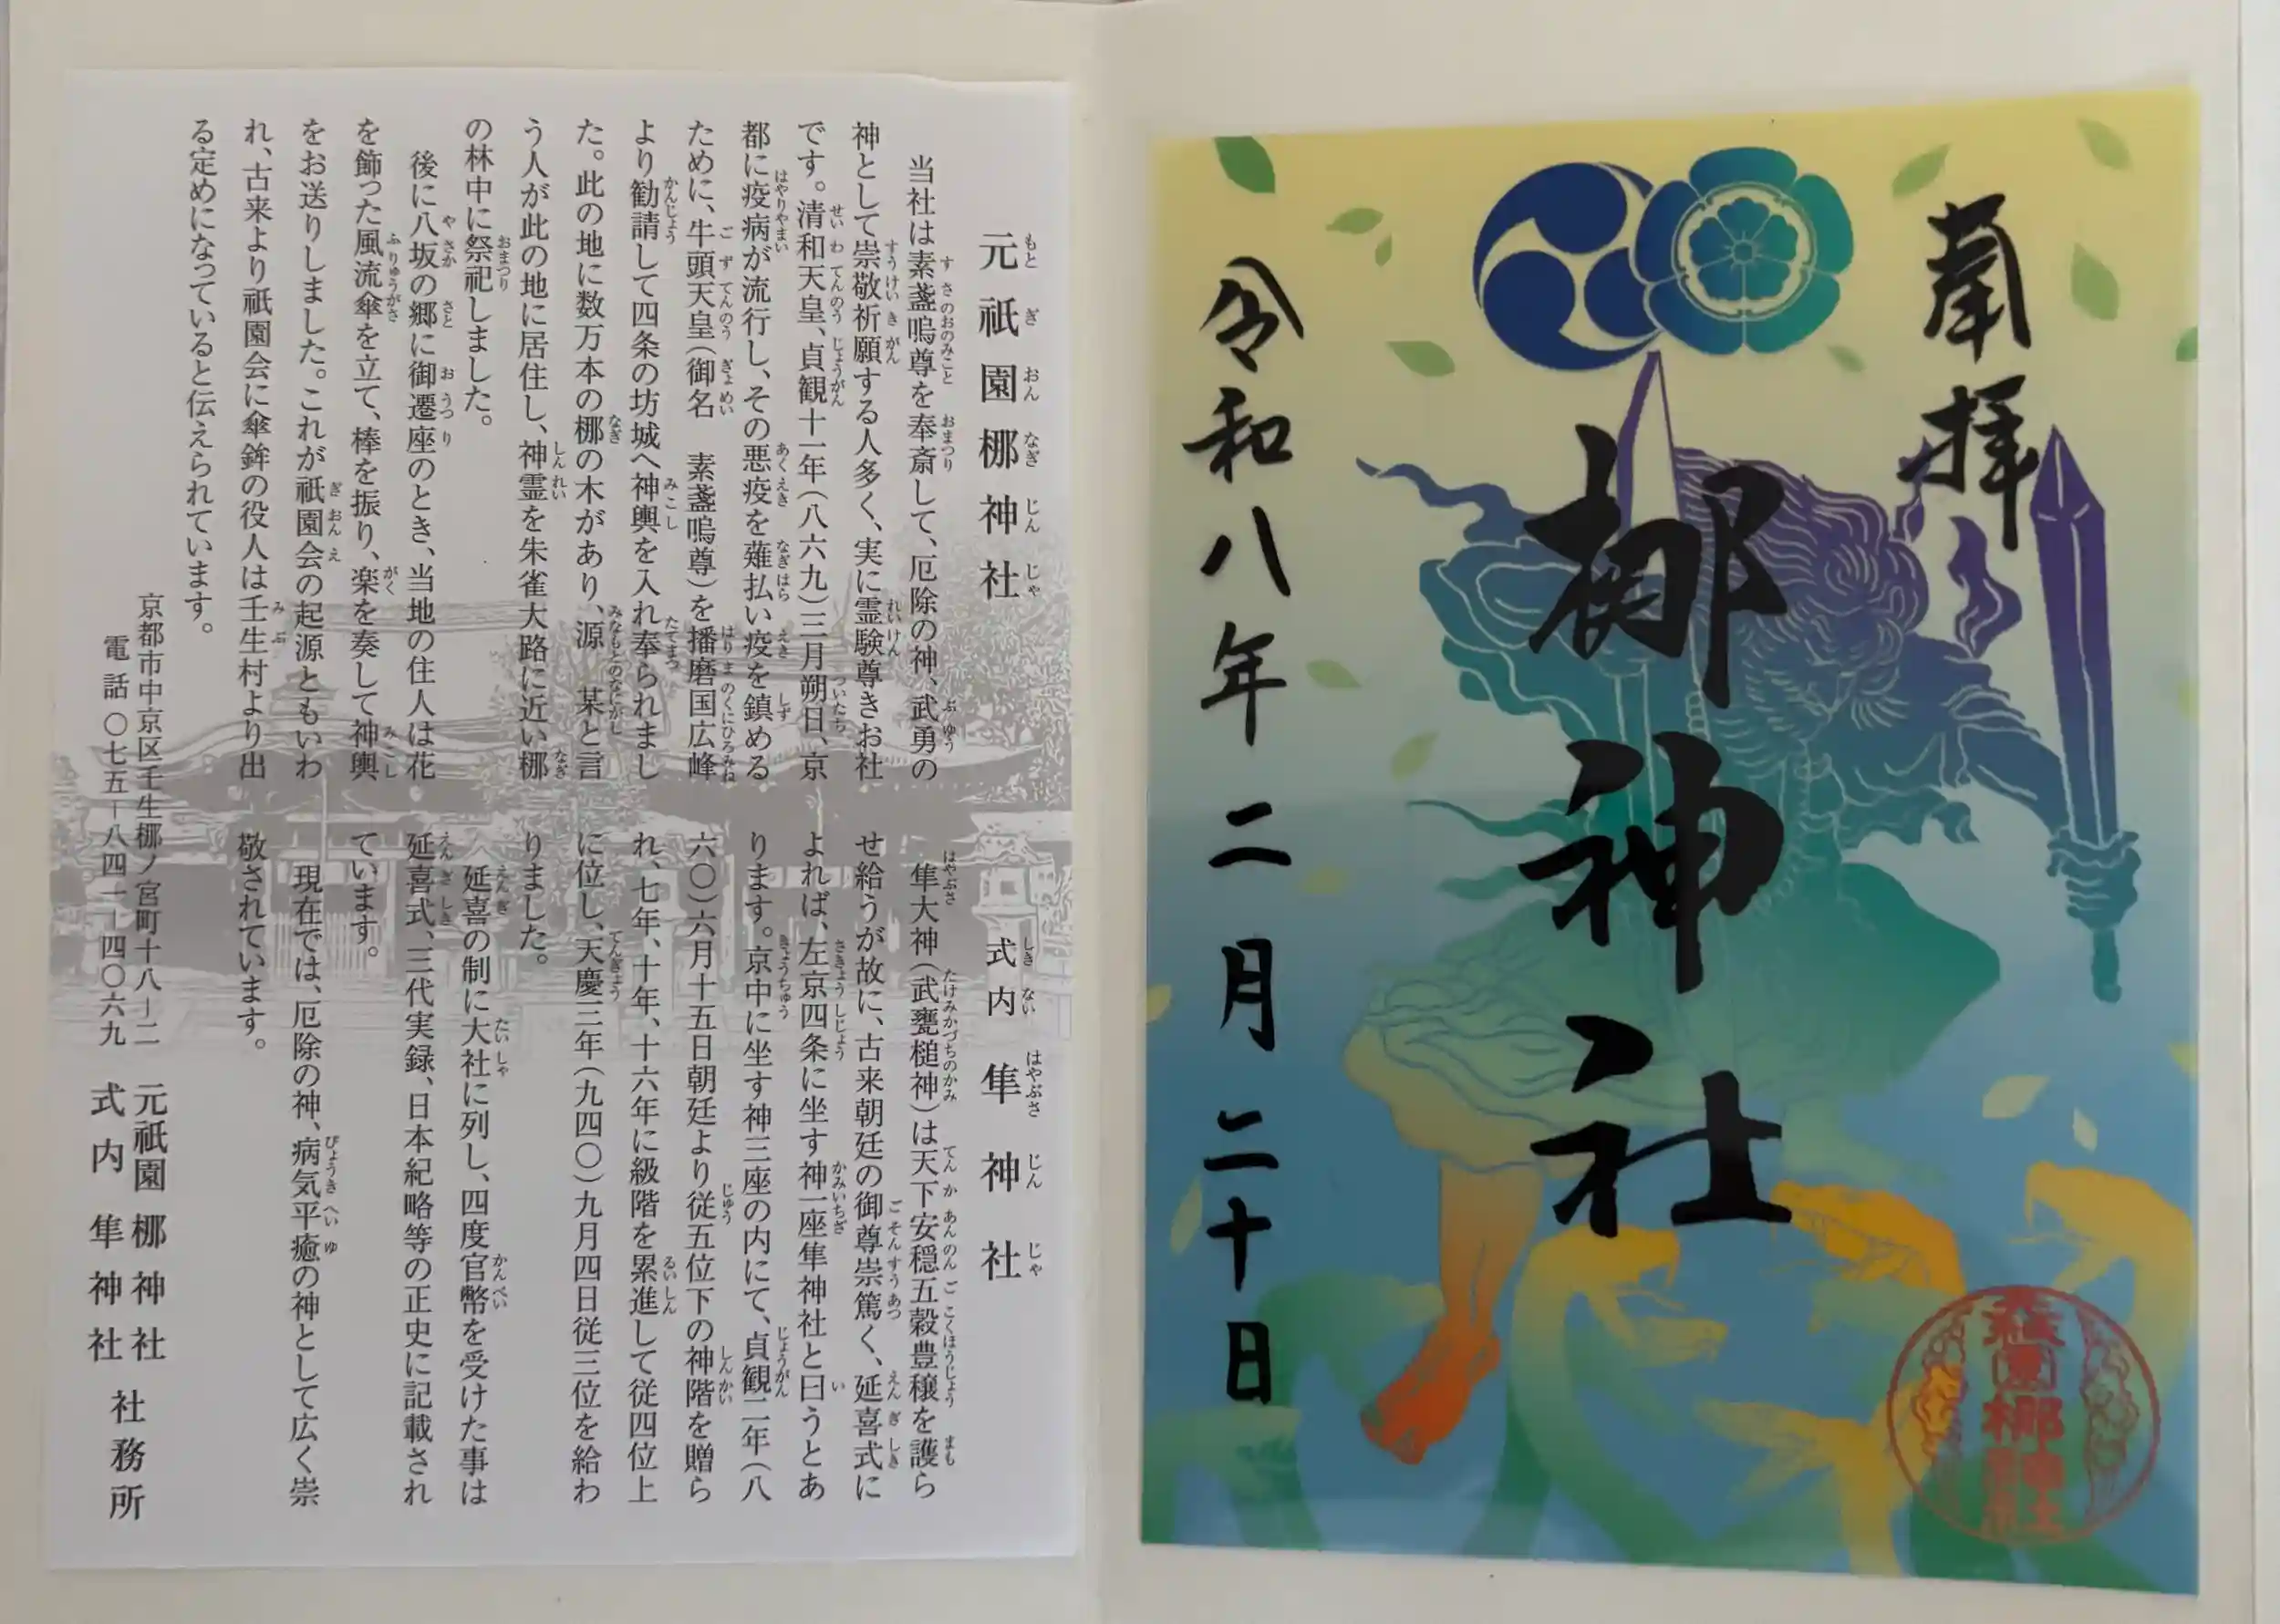 奉拝
梛神社
令和八年二月二十日
元祇園梛神社
当社は素盞嗚尊を奉斎して、厄除の神、武勇の
神として崇敬祈願する人多く、実に霊験尊きお社
です。清和天皇、貞観十一年（八六九）三月朔日、京
都に疫病が流行し、その悪疫を薙払い疫を鎮める
ために、牛頭天皇（御名　素盞嗚尊）を播磨国広峰
より勧請して四条の坊城へ神輿を入れ奉られまし
た。此の地に数万本の梛の木があり、源　某と言
う人が此の地に居住し、神霊を朱雀大路に近い梛
の林中に祭祀しました。
後に八坂の郷に御遷座のとき、当地の住人は花
を飾った風流傘を立て、棒を振り、楽を奏して神輿
をお送りしました。これが祇園会の起源ともいわ
れ、古来より祇園会に傘鉾の役人は壬生村より出
る定めになっていると伝えられています。
式内　隼神社
隼大神（武甕槌神）は天下安穏五穀豊穣を護ら
せ給うが故に、古来朝廷の御尊崇篤く、延喜式に
よれば、左京四条に坐す神一座隼神社と曰うとあ
ります。京中に坐す神三座の内にて、貞観二年（八
六〇）六月十五日朝廷より従五位下の神階を贈ら
れ、七年、十年、十六年に級階を累進して従四位上
に位し、天慶三年（九四〇）九月四日従三位を給わ
りました。
延喜の制に大社に列し、四度官幣を受けた事は
延喜式、三代実録、日本紀略等の正史に記載され
ています。
現在では、厄除の神、病気平癒の神として広く崇
敬されています。
京都市中京区壬生梛ノ宮町十八−二
電話〇七五−八四一−四〇六九
元祇園　梛神社
式内　隼神社
社務所